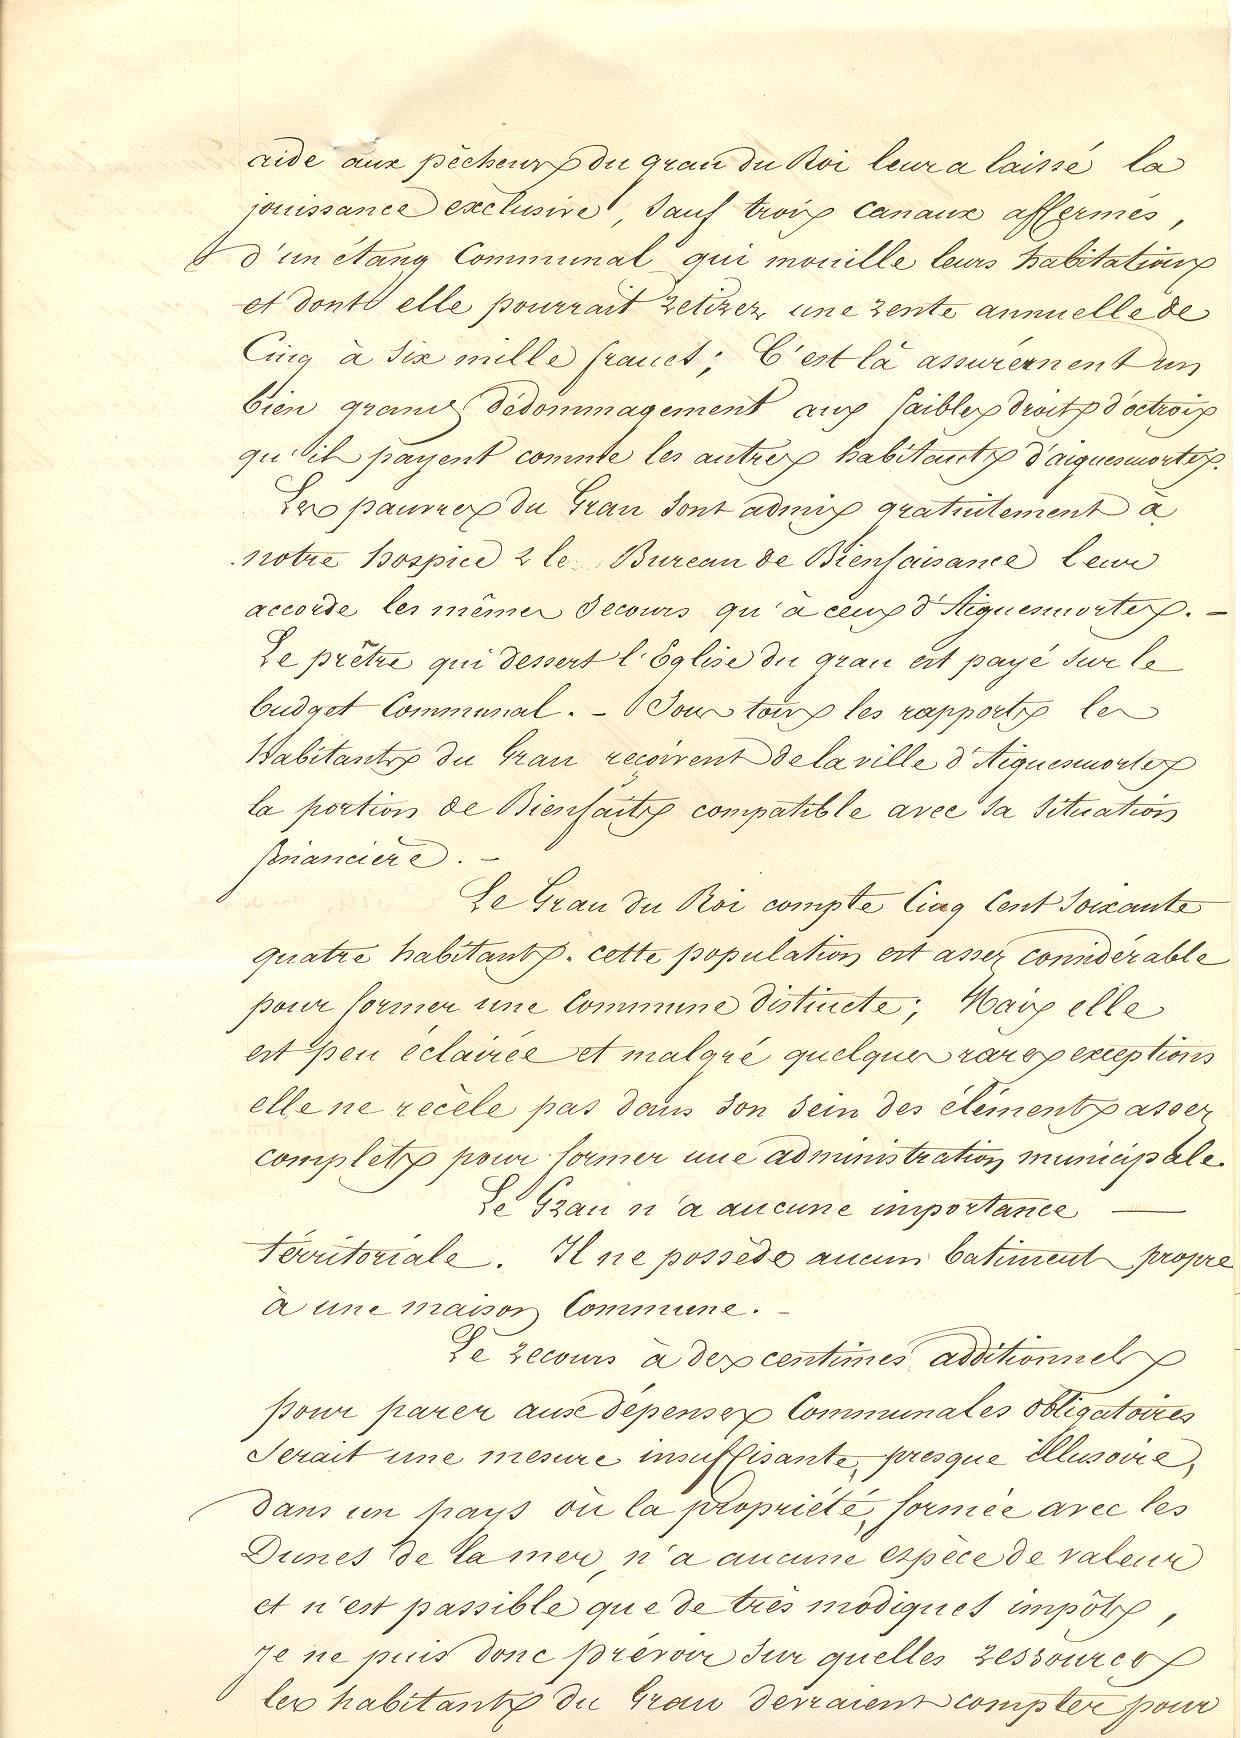 aide aux pêcheurs du grau du Roi leur a laissé la
jouissance exclusive, sauf trois canaux affermés,
d'un étang Communal qui mouille leurs habitations
et dont elle pourrait retirer une rente annuelle de
Cinq à six mille francs; C'est là assurément un
bien grand dédommagement aux faibles droits d'octrois
qu'ils payent comme les autres habitants d'aiguesmortes.
Les pauvres du Grau sont admis gratuitement à
notre hospice & le Bureau de Bienfaisance leur
accorde les mêmes secours qu'à ceux d'Aiguesmortes. —
Le prêtre qui dessert l'Eglise du grau est payé sur le
budget Communal. — Sous tous les rapports les
habitants du Grau reçoivent de la ville d'Aiguesmortes
la portion de Bienfaits compatible avec sa situation
financière. —
Le Grau du Roi compte Cinq Cent soixante
quatre habitants. cette population est assez considérable
pour former une Commune distincte; Mais elle
est peu éclairée et malgré quelques rares exceptions
elle ne recèle pas dans son sein des éléments assez
complets pour former une administration municipale.
Le Grau n'a aucune importance —
térritoriale. Il ne possède aucun batiment propre
à une maison Commune. —
Le recours à des centimes additionnels
pour parer aux dépenses Communales obligatoires
serait une mesure insuffisante, presque illusoire,
dans un pays où la propriété, formée avec les
Dunes de la mer, n'a aucune espèce de valeur
et n'est passible que de très modiques impôts,
je ne puis donc prévoir sur quelles ressources
les habitants du Grau devraient compter pour